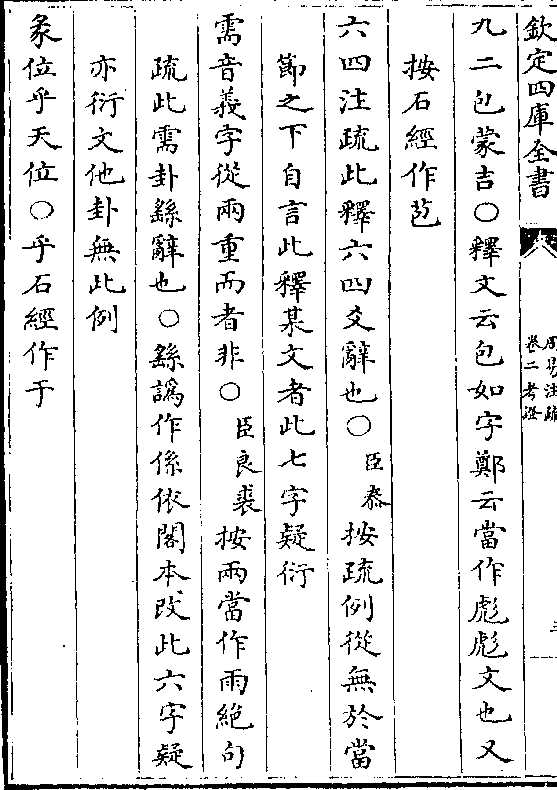 欽定四庫全書
周易注疏
卷二考證
三
九二包蒙吉○釋文云包如字鄭云當作彪彪文也又
按石經作苞
六四注疏此釋六四爻辭也○臣泰按疏例從無於當
節之下自言此釋某文者此七字疑衍
需音義字從兩重而者非○臣良裘按兩當作雨絶句
疏此需卦繇辭也○繇譌作係依閣本改此六字疑
亦衍文他卦無此例
彖位乎天位○乎石經作于